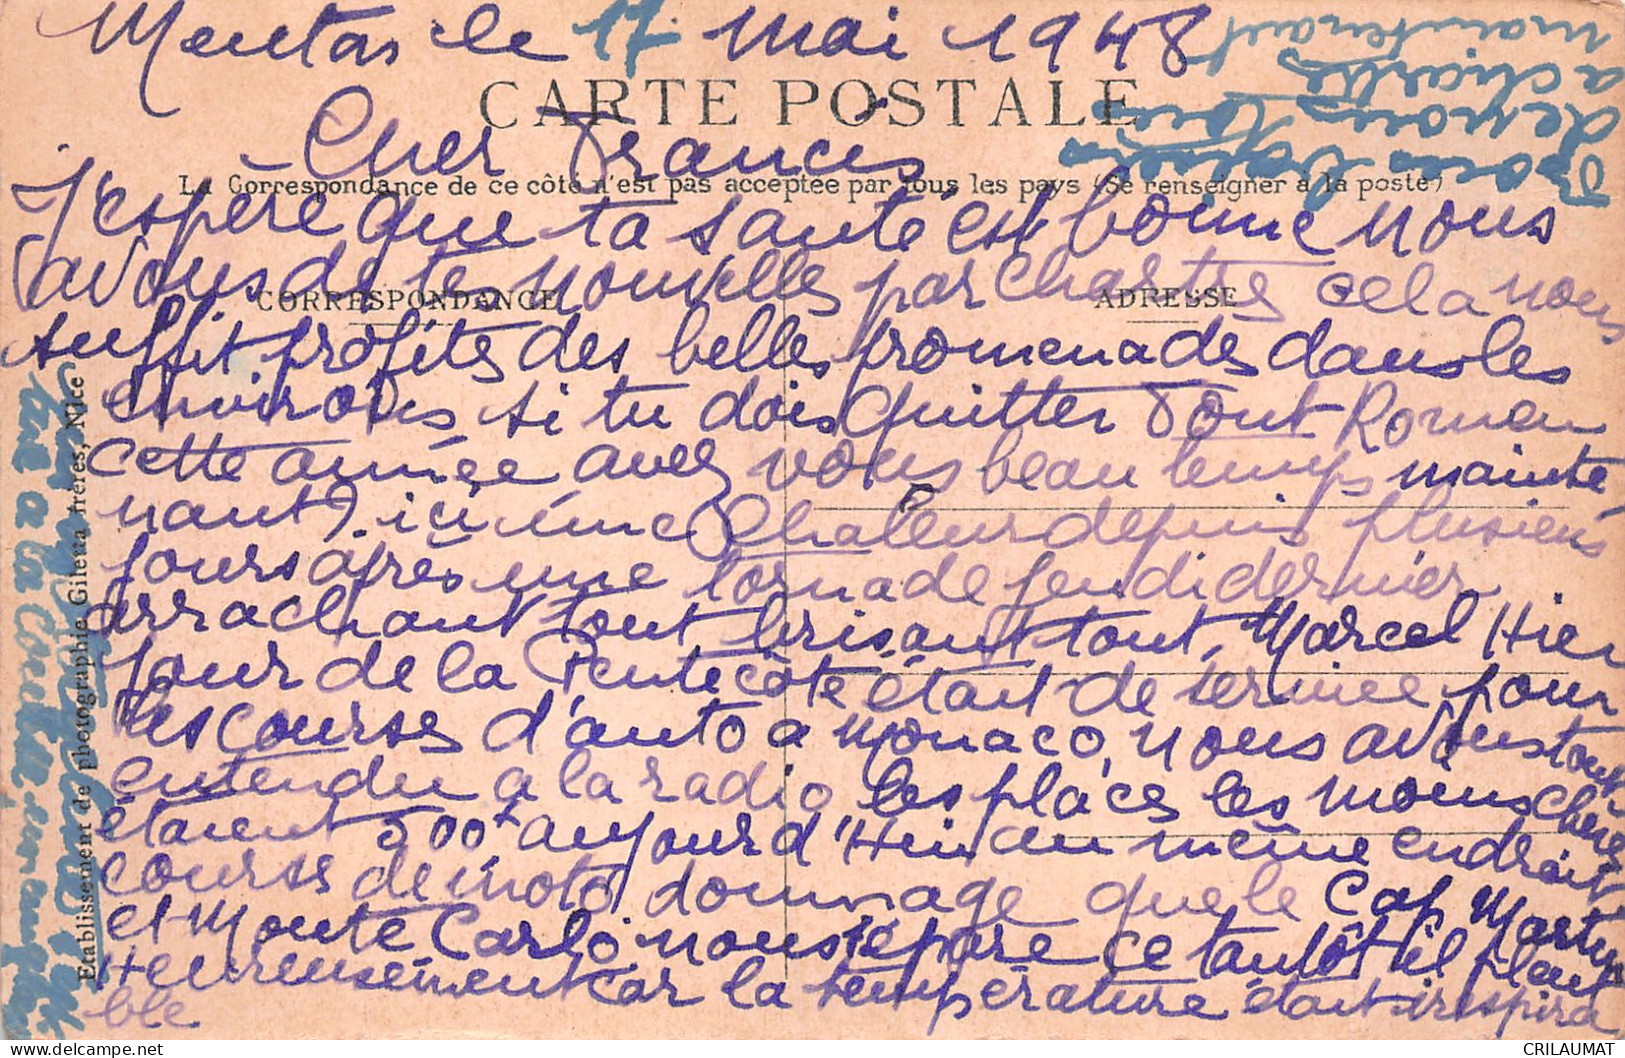 Menton le 17 mai 1948
CARTE POSTALE
Cher Francis
La Correspondance de ce côté n'est pas acceptée par tous les pays (Se renseigner à la poste)
J'espère que ta santé est bonne nous
avons de te nouvelles par Chartres cela nous
CORRESPONDANCE
ADRESSE
suffit profites des belles promenades dans les
environs, si tu dois quitter Pont Romeu
cette année avez vous beau temps mainte
nant, ici une Chaleur depuis plusieurs
jours après une tornade jeudi dernier
arrachant tout brisant tout, Marcel Hier
jour de la Pentecôte était de service pour
les courses d'auto a Monaco, nous avons tout
entendu a la radio les places les moins chères
étaient 500f aujourd'Hui au même endroit
course de moto dommage que le Cap Martin
et Monte Carlo nous sépare ce tantôt il pleut
Heureusement car la température était irrespira
ble
Trois baisers
de nous tous
a Charles
maintenant
a la
Etablissement de photographie Giletta frères, Nice
CRILAUMAT